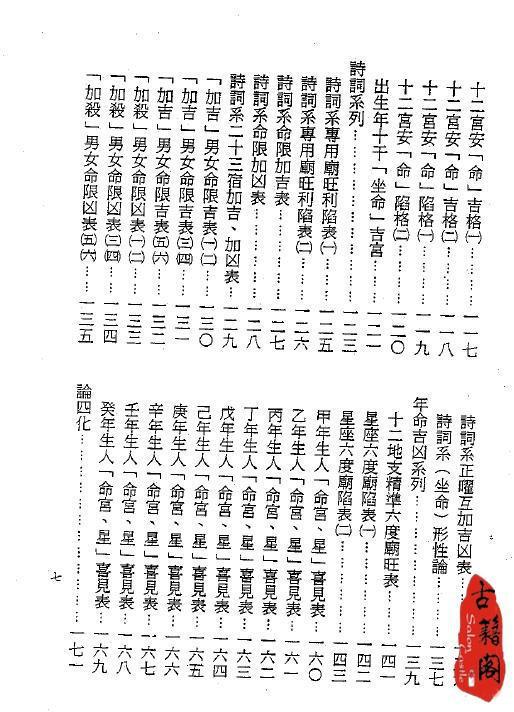 十二宮安「命」吉格㈠………一一七
十二宮安「命」吉格㈡………一一八
十二宮安「命」陷格㈠………一一九
十二宮安「命」陷格㈡………一二〇
出生年十干「坐命」吉宮………一二一
詩詞系列………一二三
詩詞系專用廟旺利陷表㈠………一二五
詩詞系專用廟旺利陷表㈡………一二六
詩詞系命限加吉表………一二七
詩詞系命限加凶表………一二八
詩詞系二十三宿加吉、加凶表………一二九
「加吉」男女命限吉表㈠㈡………一三〇
「加吉」男女命限吉表㈢㈣………一三一
「加吉」男女命限吉表㈤㈥………一三二
「加殺」男女命限凶表㈠㈡………一三三
「加殺」男女命限凶表㈢㈣………一三四
「加殺」男女命限凶表㈤㈥………一三五
詩詞系正曜互加吉凶表………
詩詞系（坐命）形性論………一三七
年命吉凶系列………一三九
十二地支精準六度廟旺表………一四一
星座六度廟陷表㈠………一四二
星座六度廟陷表㈡………一四三
甲年生人「命宮、星」喜見表………一六〇
乙年生人「命宮、星」喜見表………一六一
丙年生人「命宮、星」喜見表………一六二
丁年生人「命宮、星」喜見表………一六三
戊年生人「命宮、星」喜見表………一六四
己年生人「命宮、星」喜見表………一六五
庚年生人「命宮、星」喜見表………一六六
辛年生人「命宮、星」喜見表………一六七
壬年生人「命宮、星」喜見表………一六八
癸年生人「命宮、星」喜見表………一六九
論四化………一七一
七
古籍閣
Salon